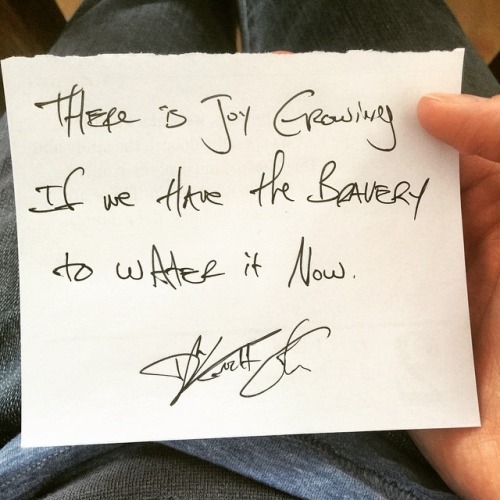 THERE is Joy Growing
If we HAVE the BRAVERY
to WATER it Now.